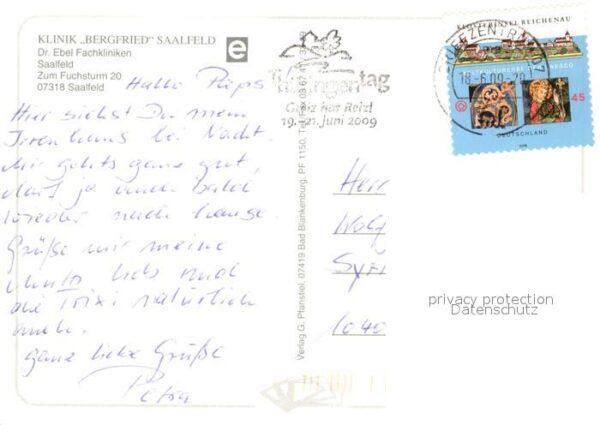 KLINIK „BERGFRIED" SAALFELD
Dr. Ebel Fachkliniken
Saalfeld
Zum Fuchsturm 20
07318 Saalfeld
e
Hallo Paps
Hier siehst Du mein
Irrenhaus bei Nacht.
Mir gehts ganz gut,
darf ja auch bald
wieder nach Hause.
Grüße mir meine
und
die Trixi natürlich
auch.
ganz liebe Grüße
Petra
Verlag G. Pfanstiel, 07419 Bad Blankenburg, PF 1150, Tel./Fax 03 67
Thüringentag
Greiz hat Reiz!
19.-21. Juni 2009
BRIEFZENTRUM
18-6.09-20
KLOSTERINSEL REICHENAU
KULTURERBE DER UNESCO
45
DEUTSCHLAND
Herr
Wolf
104
privacy protection
Datenschutz